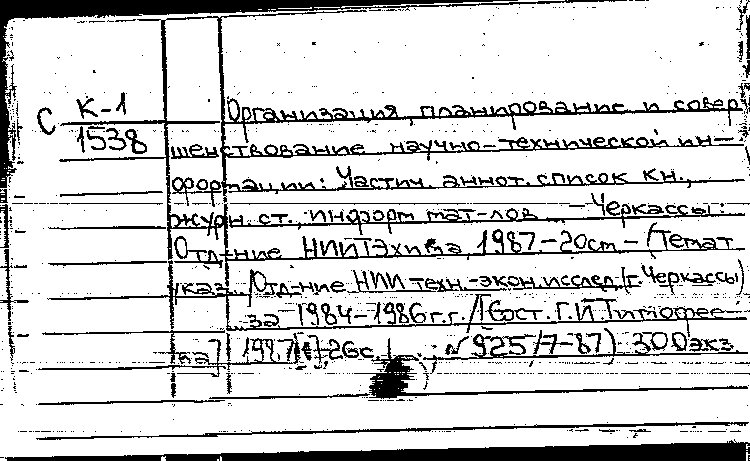 С К-1
1538
Организация, планирование и совер
шенствование научно-технической ин-
формации: Частич. аннот. список кн.,
журн. ст., информ мат-лов — Черкассы:
Отд-ние НИИТЭхима, 1987-20см - (Темат
указ. /Отд-ние НИИ техн.-экон. исслед. (г. Черкассы)
за 1984-1986 г.г. / [Сост. Г.И. Тимофее-
ва] 1987, 26с. № 925/7-87) 300экз